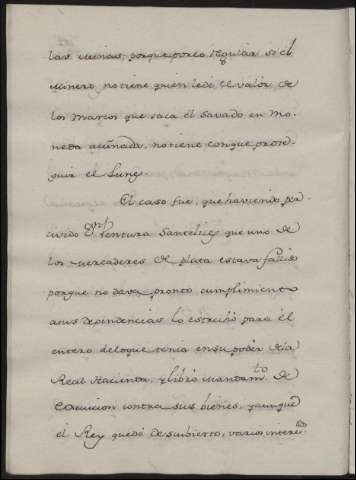 las minas; porque por lo regular si el
Minero, no tiene quien le dé el valor de
los Marcos que saca el Savado en mo-
neda acuñada, no tiene con que prose-
guir el Lunes.
El caso fue, que haviendo per-
civido Dn Ventura Santelices que uno de
los Mercaderes de plata estava fallido
porque no dava pronto cumplimiento
a sus dependencias lo estrechó para el
entero de lo que tenia en su poder de la
Real Hacienda, y libró mandamto de
Execucion contra sus bienes, y aunque
el Rey quedó descubierto, varios interedos